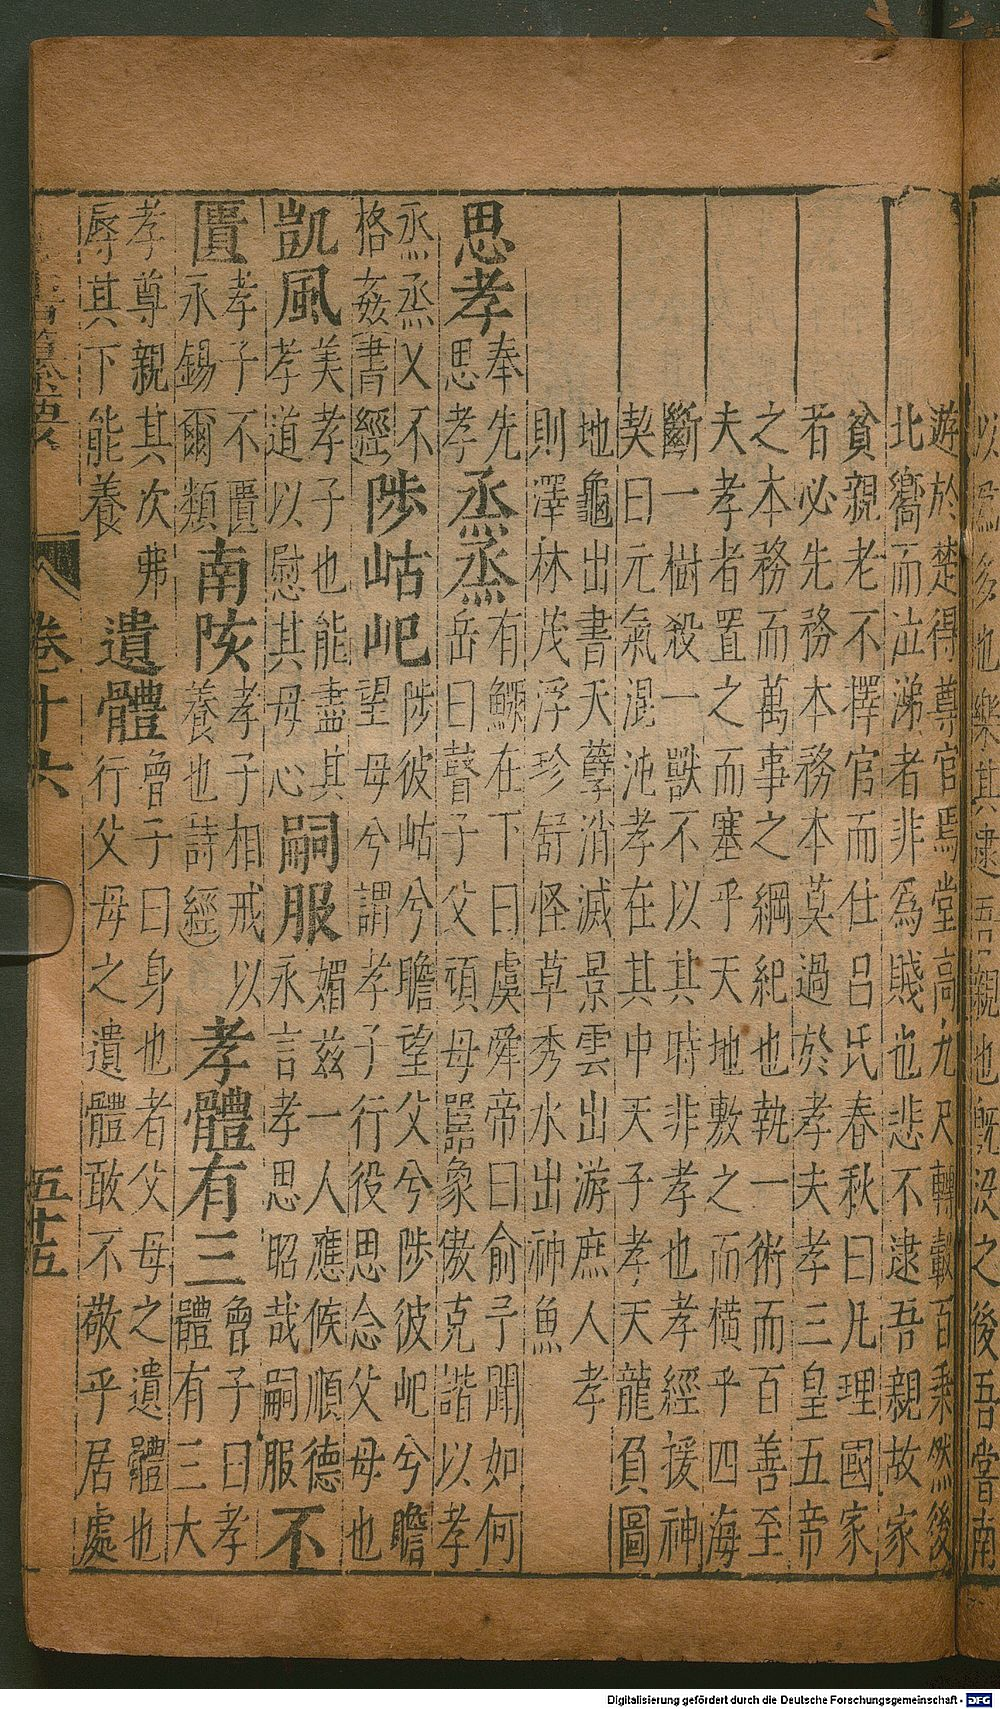 以為後也樂其逮吾親也既沒之後吾嘗南
遊於楚得尊官焉堂高九尺轉轂百乘然後
北嚮而泣涕者非為賤也悲不逮吾親故家
貧親老不擇官而仕呂氏春秋曰凡理國家
者必先務本務本莫過於孝夫孝三皇五帝
之本務而萬事之綱紀也執一術而百善至
夫孝者置之而塞乎天地敷之而橫乎四海
斷一樹殺一獸不以其時非孝也孝經援神
契曰元氣混沌孝在其中天子孝天龍負圖
地龜出書天孽消滅景雲出游庶人孝
則澤林茂浮珍舒怪草秀水出神魚
思孝
奉先
思孝
烝烝
有鰥在下曰虞舜帝曰俞予聞如何
岳曰瞽子父頑母嚚象傲克諧以孝
烝烝乂不
格姦書經
陟岵屺
陟彼岵兮瞻望父兮陟彼屺兮瞻
望母兮謂孝子行役思念父母也
凱風
美孝子也能盡其
孝道以慰其母心
嗣服
媚茲一人應候順德
永言孝思昭哉嗣服
不
匱
孝子不匱
永錫爾類
南陔
孝子相戒以
養也詩經
孝體有三
曾子曰孝
體有三大
孝尊親其次弗
辱其下能養
遺體
曾子曰身也者父母之遺體也
行父母之遺體敢不敬乎居處
卷十六
五十五
Digitalisierung gefördert durch die Deutsche Forschungsgemeinschaft - DFG